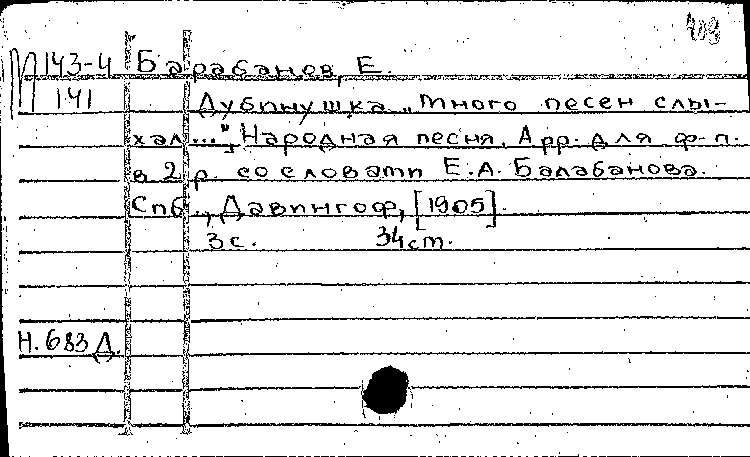 П143-4 Барабанов, Е.
141 Дубинушка „Много песен слы-
хал...", Народная песня. Арр. для ф-п.
в 2 р. со словами Е.А. Балабанова.
Спб., Давингоф, [1905].
3 с. 34 см.
Н. 683 Д.